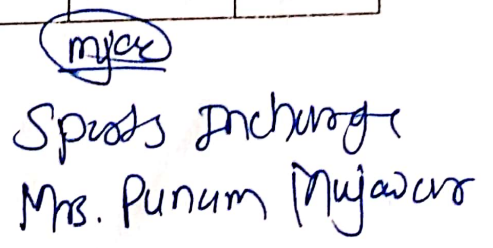 Sports Incharge
Mrs. Punum Mujawar